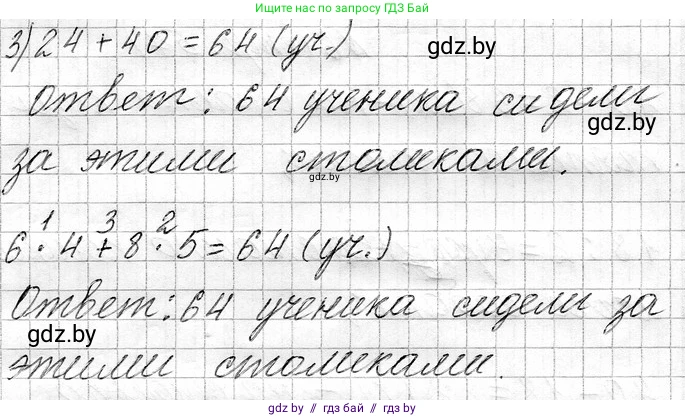 Ищите нас по запросу ГДЗ Бай
3) 24 + 40 = 64 (уч.)
gdz.by
Ответ: 64 ученика сидели
gdz.by
за этими столиками.
gdz.by
1 3 2
6 · 4 + 8 · 5 = 64 (уч.)
Ответ: 64 ученика сидели за
gdz.by
этими столиками.
gdz.by // гдз бай // гдз.бай